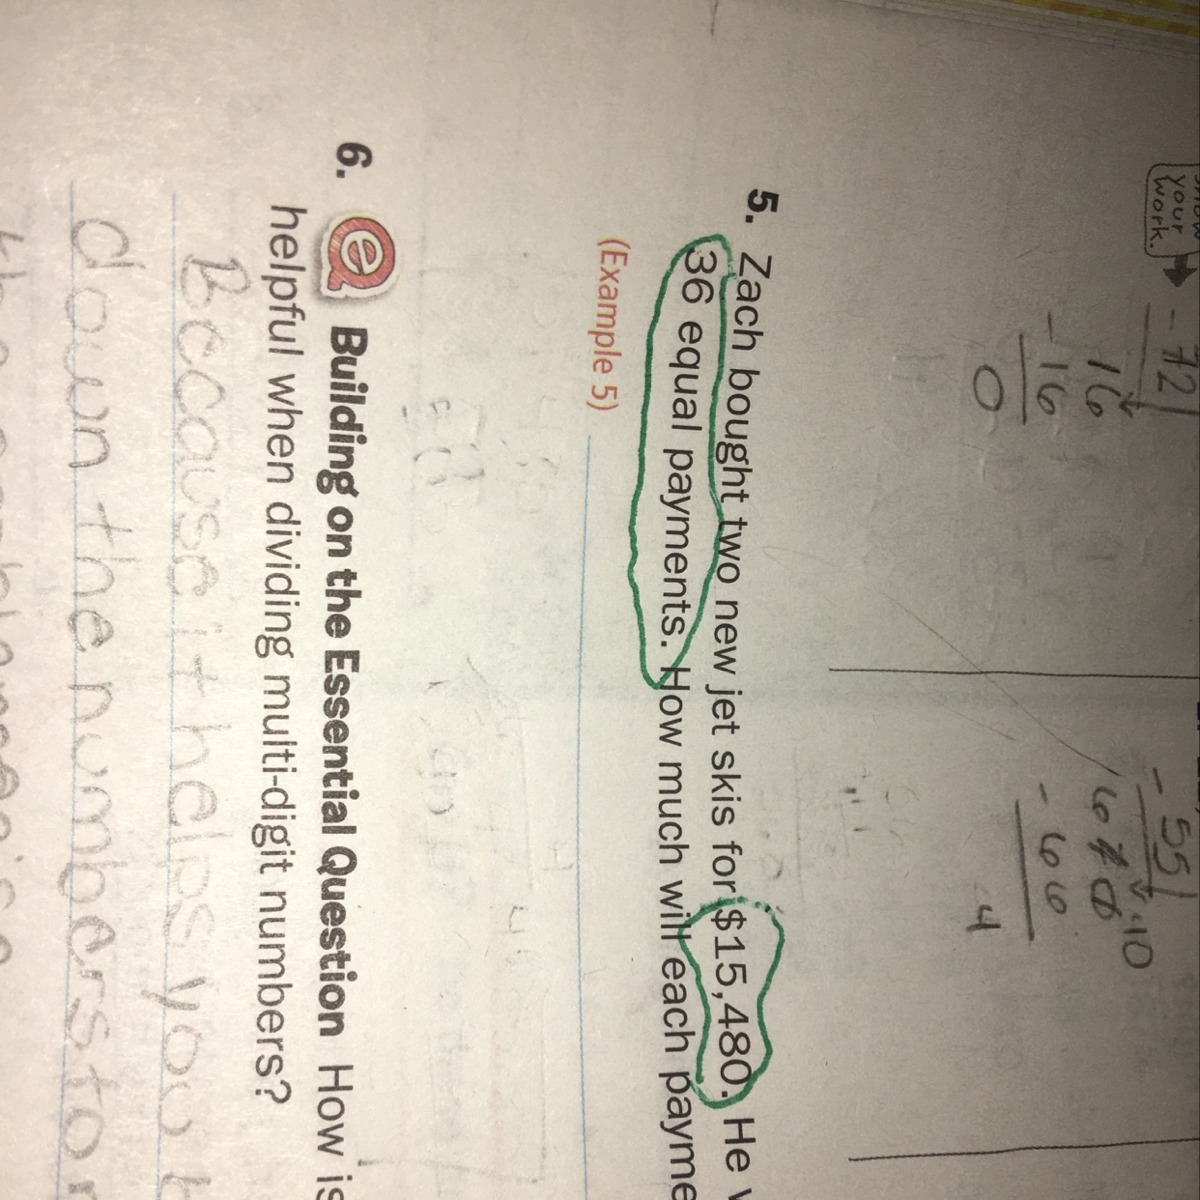 your
work.
-72
16
-16
0
-55
10
-66
4
5. Zach bought two new jet skis for $15,480. He
36 equal payments. How much will each
(Example 5)
6. e Building on the Essential Question How is
helpful when dividing multi-digit numbers?
Because it helps you
down the numbers to